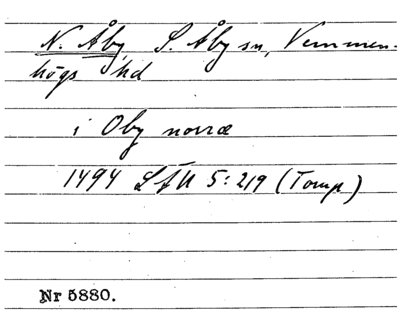 N. Åby, S. Åby sn, Vemmen-
högs hd
i Oby norræ
1494 LÄU 5:219 (Tomp)
Nr 5880.